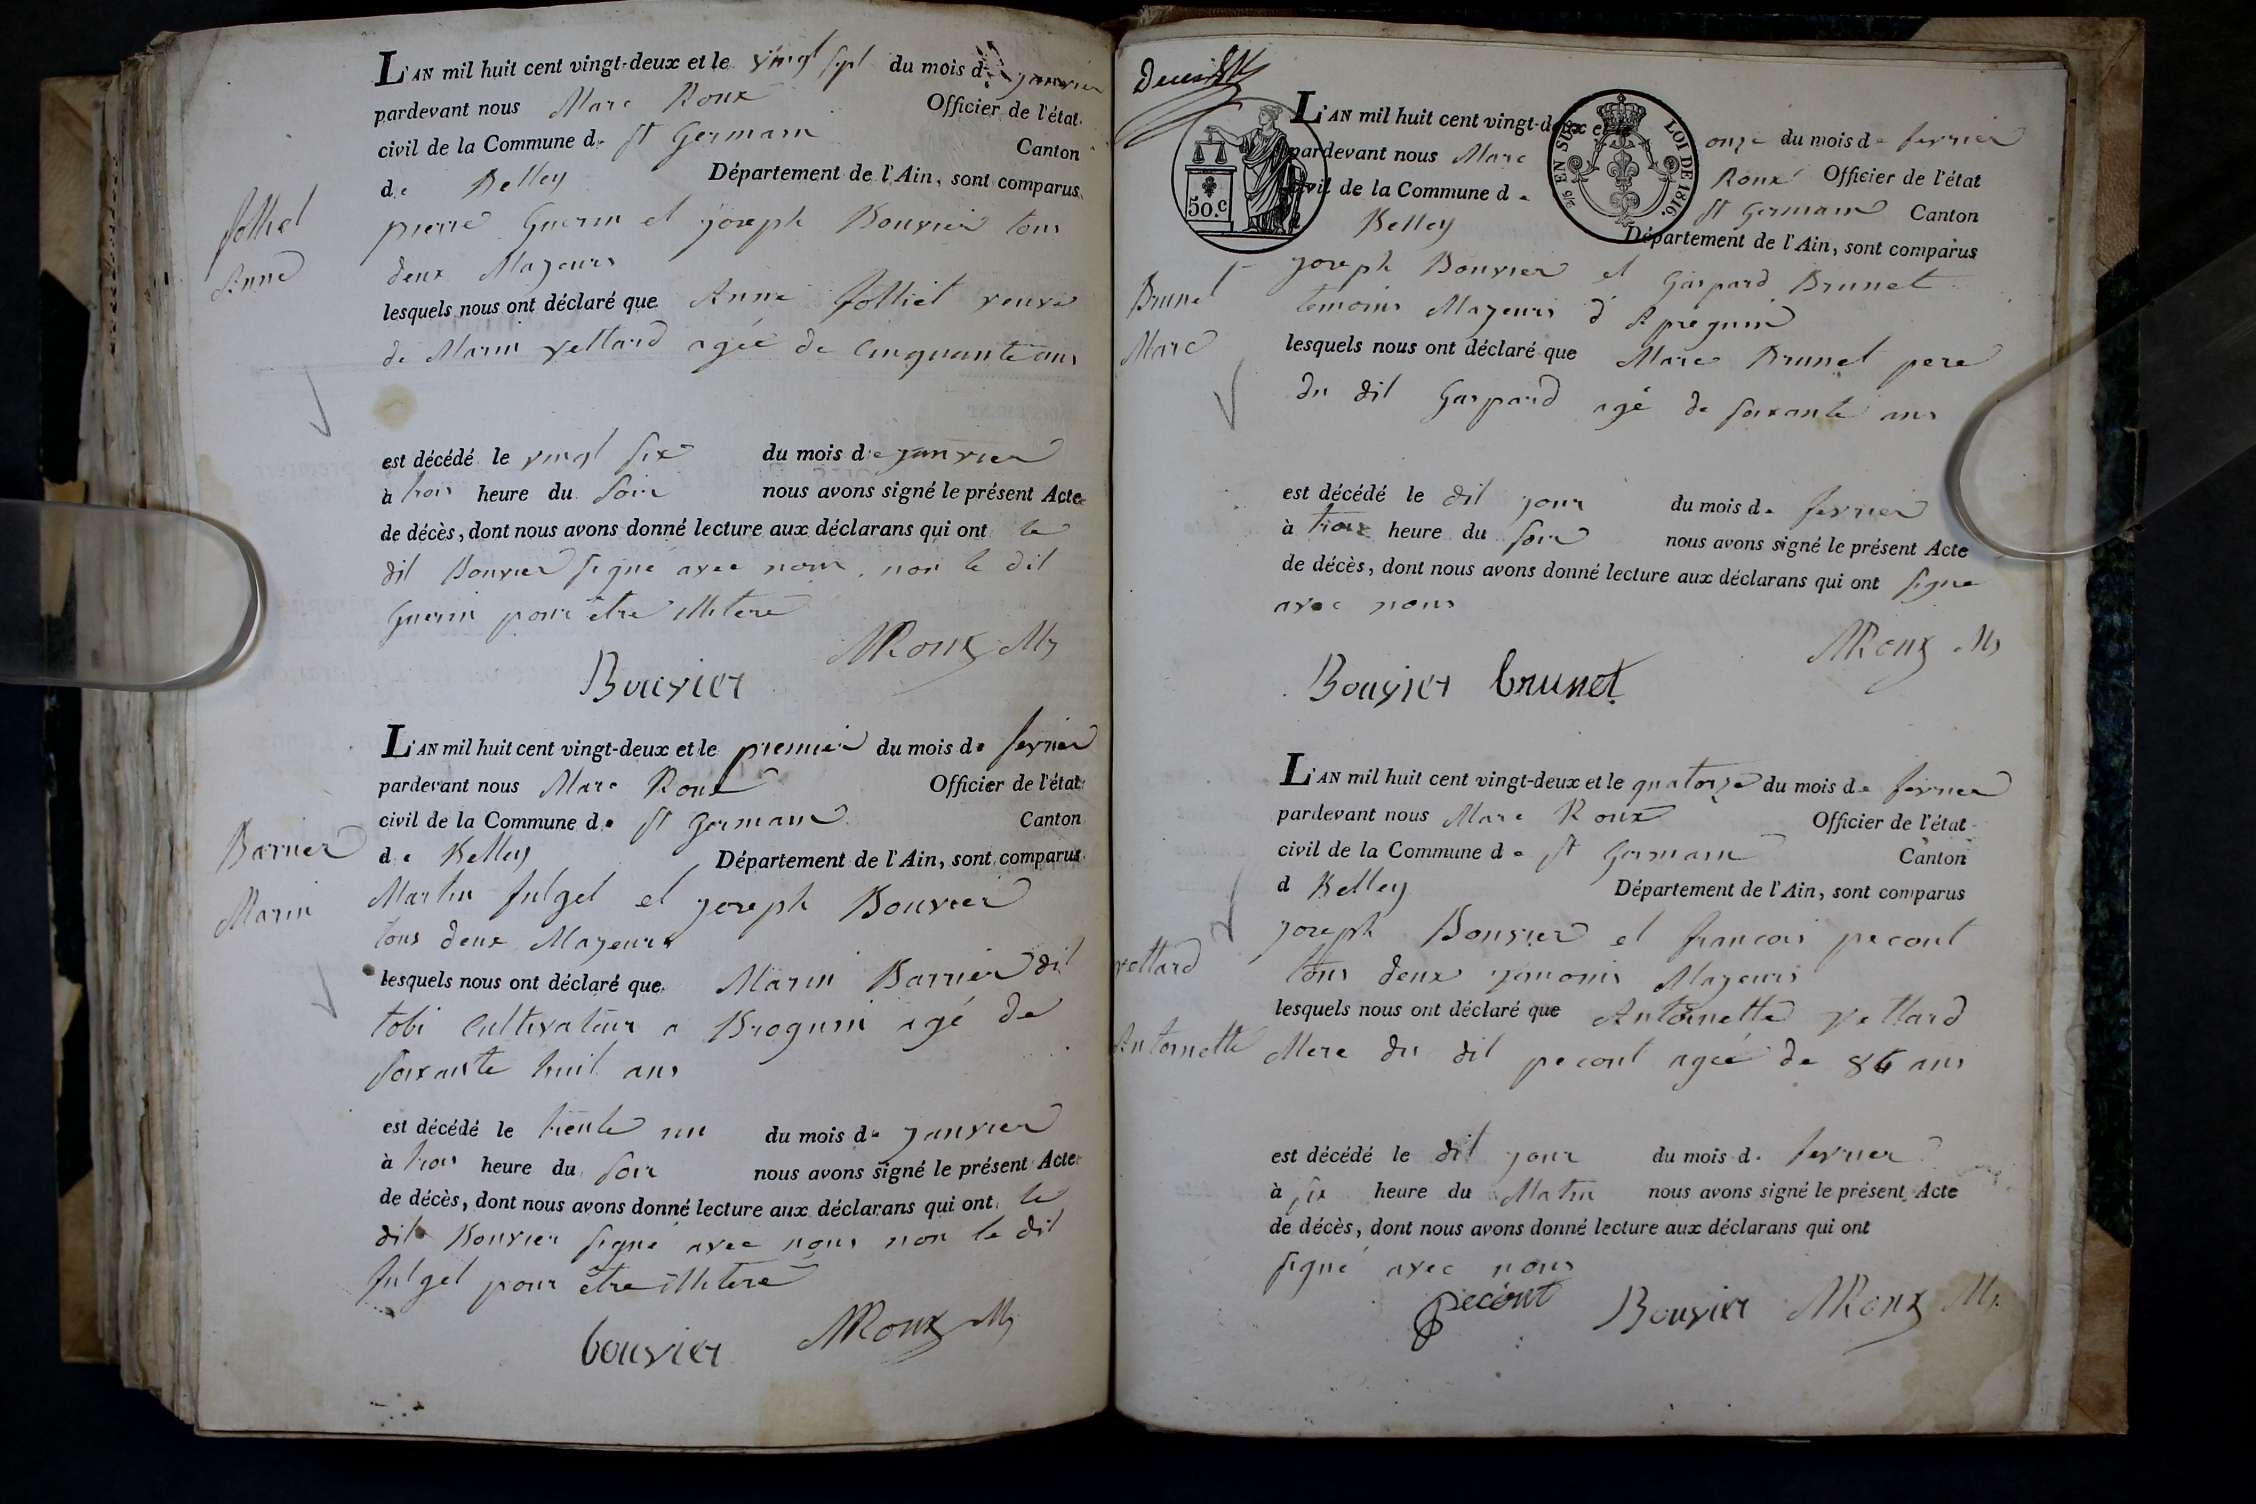 L'AN mil huit cent vingt-deux et le vingt sept du mois de janvier
pardevant nous Marc Roux Officier de l'état
civil de la Commune de St Germain Canton
de Belley Département de l'Ain, sont comparus
pierre Guerin et joseph Bouvier tous
deux Majeurs
lesquels nous ont déclaré que Anne Jolliet veuve
de Marin vettard agée de Cinquante ans
Jolliet
Anne
est décédé le vingt six du mois de janvier
à trois heure du soir nous avons signé le présent Acte
de décès, dont nous avons donné lecture aux déclarans qui ont le
dit Bouvier signé avec nous, non le dit
Guerin pour être illiteré
MRoux
Bouvier
L'AN mil huit cent vingt-deux et le premier du mois de fevrier
pardevant nous Marc Roux Officier de l'état
civil de la Commune de St Germain Canton
de Belley Département de l'Ain, sont comparus
Martin fulget et joseph Bouvier
tous deux Majeurs
lesquels nous ont déclaré que Marin Barrier dit
tobi Cultivateur a Brognin agé de
soixante huit ans
Barrier
Marin
est décédé le trente un du mois de janvier
à trois heure du soir nous avons signé le présent Acte
de décès, dont nous avons donné lecture aux déclarans qui ont le
dit Bouvier signé avec nous non le dit
fulget pour être illiteré
MRoux
bouvier
50.c
EN SUS LOI DE 1816.
L'AN mil huit cent vingt-deux et le onze du mois de fevrier
pardevant nous Marc Roux Officier de l'état
civil de la Commune de St Germain Canton
Belley Département de l'Ain, sont comparus
joseph Bouvier et Gaspard Brunet
temoins Majeurs d'Apregnin
lesquels nous ont déclaré que Marc Brunet pere
du dit Gaspard agé de soixante ans
Brunet
Marc
est décédé le dit jour du mois de fevrier
à trois heure du soir nous avons signé le présent Acte
de décès, dont nous avons donné lecture aux déclarans qui ont signé
avec nous
MRoux
Bouvier brunet
L'AN mil huit cent vingt-deux et le quatorze du mois de fevrier
pardevant nous Marc Roux Officier de l'état
civil de la Commune de St Germain Canton
d Belley Département de l'Ain, sont comparus
joseph Bouvier et francois pecout
tous deux temoins Majeurs
lesquels nous ont déclaré que Antoinette vettard
Mere du dit pecout agée de 86 ans
vettard
Antoinette
est décédé le dit jour du mois de fevrier
à six heure du Matin nous avons signé le présent Acte
de décès, dont nous avons donné lecture aux déclarans qui ont
signé avec nous
pecout Bouvier MRoux